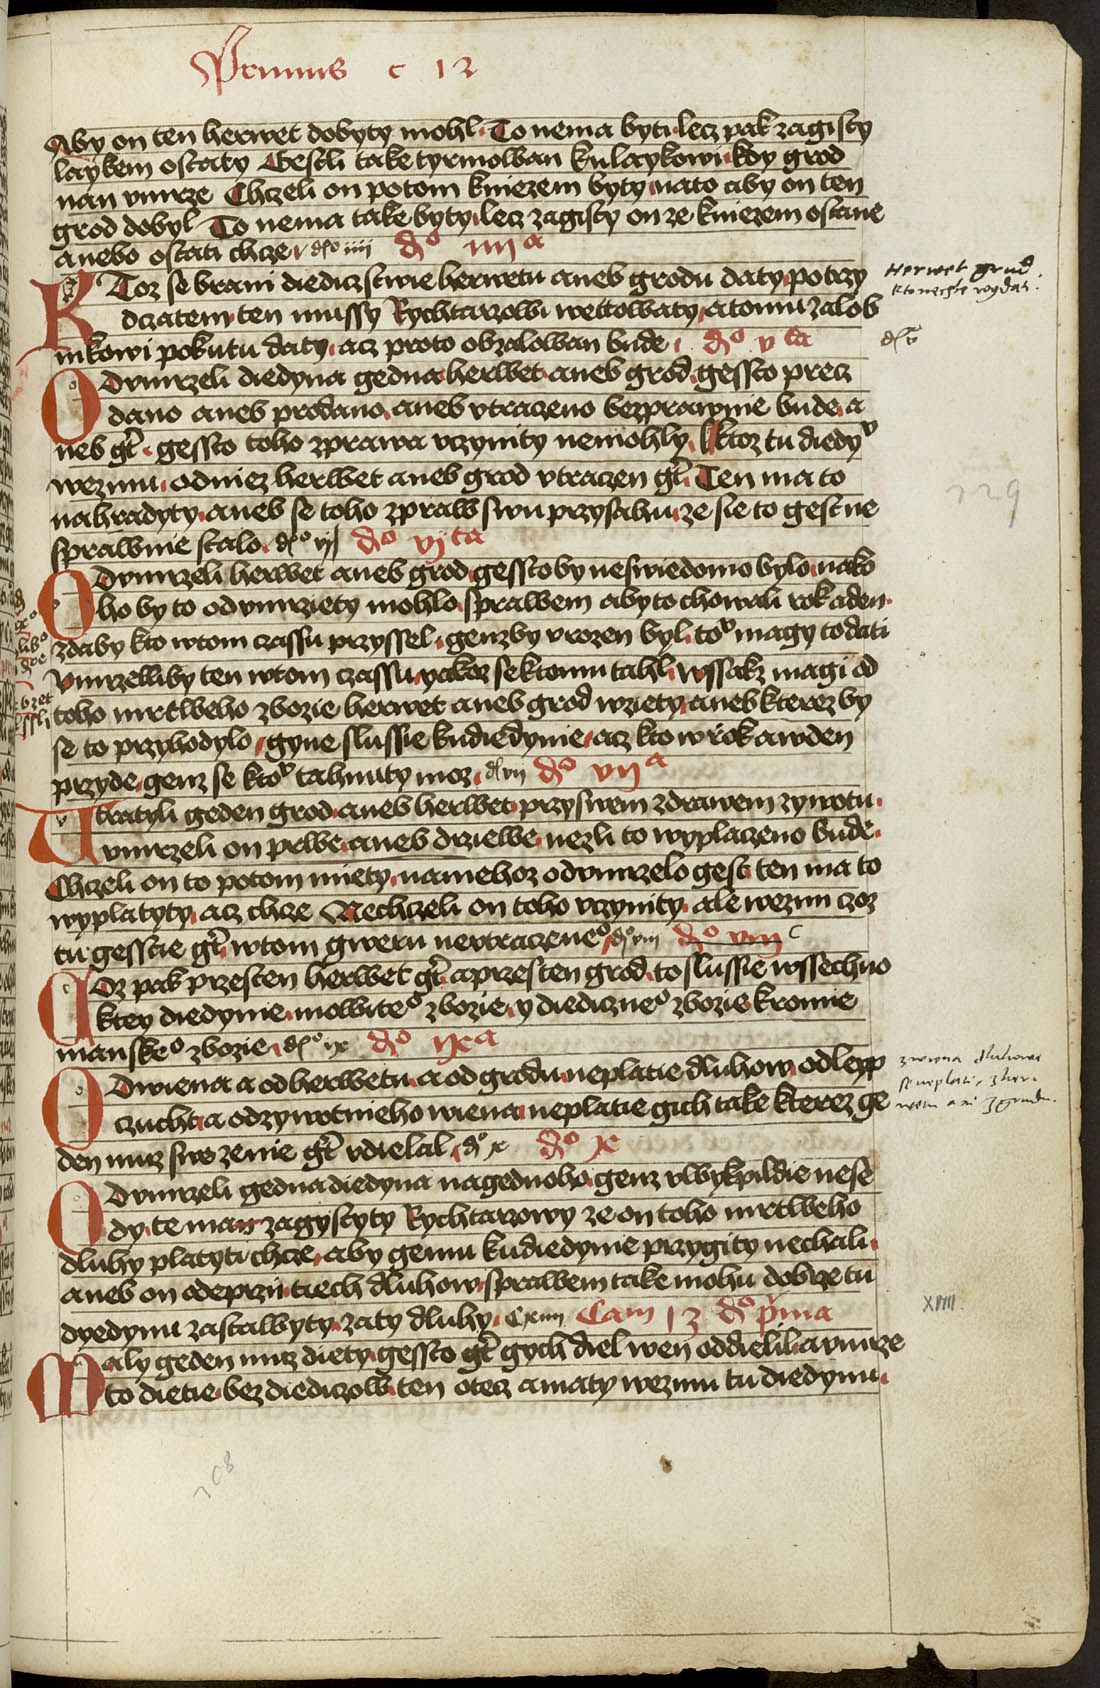 Primus c 12
Aby on ten herwet dobyty mohl. To nema byti lecz pak zagisty
laykem ostaty Gestli take tyrmowan ku laykowi kdy grod
nan vmrze Chczeli on potom kniezem byty nato aby on ten
grod dobyl To nema take byty lecz zagisty on ze kniezem ostane
anebo ostati chze dº iiii dº iiiiª
KToz se brani diediczstwie herwetu aneb grodu daty po trzy
dczatem ten mussy Rychtarzowi wettowaty a tomu zalob
nikowi pokutu daty acz proto obzalowan bude dº vta
ODvmrzeli diedyna gedna herwet aneb grod gessto precz
dano aneb prodano aneb vtraczeno bezprawnie bude a
neb gt gessto toho zprawa vczynity nemohly ktoz tu diedyv
wezmu od niez herwet aneb grod vtraczen gt Ten ma to
nahradyty aneb se toho zpraw swu przysahu ze sie to gest ne
sprawnie stalo dº vj dº vjta
ODvmrzeli herwet aneb grod gessto by neswiedomo bylo nako
ho by to od vmrziety mohlo sprawem aby to chowali rok a den
zdaby kto wtom czassu przyssel genz by vrozen byl tov magy to dati
vmrzelliby ten wtom czassu yakoz se k tomu tahl wssakz magi od
toho mrtweho zbozie herwet aneb grod wziety aneb kterez by
se to przyhodylo gyne slussie ku diedynie acz kto w rok a w den
przyde genz se k tov tahnuty moz dº vii dº viiª
Vtratyli geden grod aneb herwet przy swem zdrawem zywotu
vmrzeli on prwe aneb drziewe nezli to wyplaczeno bude
Chczeli on to potom miety namehoz odvmrzelo gest ten ma to
wyplatyty acz chze Nechczeli on toho vczynity ale wezmi czoz
tu gesscie gt wtom gweru nevtraczeneº dº viii dº viii c
COz pak przesten herwet gt a przes ten grod to slussie wssechno
k tey diedynie mowiteº zbozie y diediczneº zbozie kromie
manskeº zbozie dº ix dº ixª
ODwiena a od herwetu a od gradu neplatie dluhow od lepp
czucht a od zywotnieho wiena neplatie gich take kterez ge
den muz swe zenie gt vdielal dº x dº x
ODvmrzeli gedna diedyna na gednoho genz vwykpildie nese
dy te ma zagystyty Rychtarzowy ze on toho mrtweho
dluhy platyti chze aby gemu ku diedynie przygity nechali
aneb on odeprzii tiech dluhow sprawem take mohu dobrze tu
dyedynu zastawyty za ty dluhy Cxiii Cam 13 dº prima
Maly geden muz diety gessto gt gych diel wen oddielil a vmrze
to dietie bez diediczow ten otecz a maty wezmu tu diedynu
Herwet grud
kto nechze wydati
dº v
729
z wiena dluhowe
se neplati, z her
wetu ani z grudu
XIIII
308